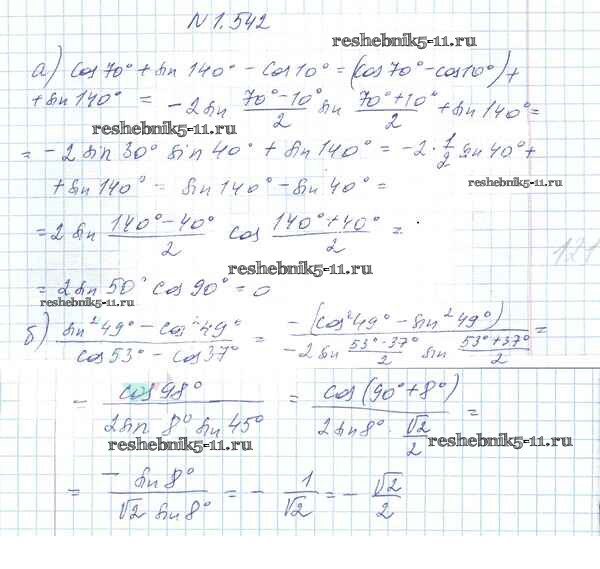 N 1.542
reshebnik5-11.ru
а) cos 70° + sin 140° - cos 10° = (cos 70° - cos 10°) +
+ sin 140° = -2 sin (70° - 10°)/2 sin (70° + 10°)/2 + sin 140° =
reshebnik5-11.ru
= -2 sin 30° sin 40° + sin 140° = -2 · 1/2 sin 40° +
+ sin 140° = sin 140° - sin 40° =
reshebnik5-11.ru
= 2 sin (140° - 40°)/2 cos (140° + 40°)/2 =
= 2 sin 50° cos 90° = 0
reshebnik5-11.ru
reshebnik5-11.ru
б) (sin² 49° - cos² 49°)/(cos 53° - cos 37°) = (-(cos² 49° - sin² 49°))/(-2 sin (53° - 37°)/2 sin (53° + 37°)/2) =
= (cos 98°)/(2 sin 8° sin 45°) = (cos (90° + 8°))/(2 sin 8° · √2/2) =
reshebnik5-11.ru
reshebnik5-11.ru
= (- sin 8°)/(√2 sin 8°) = - 1/√2 = - √2/2